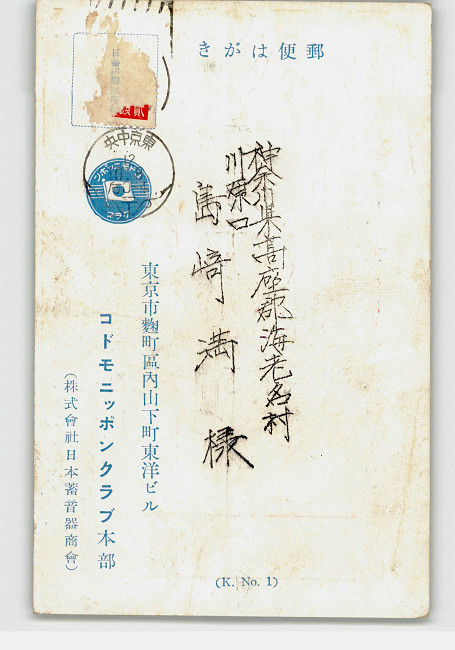 郵便はがき
東京中央
12
コドモニッポン
クラブ
神奈川県高座郡海老名村
川原口
島﨑満様
東京市麴町區內山下町東洋ビル
コドモニッポンクラブ本部
(株式會社日本蓄音器商會)
(K. No. 1)